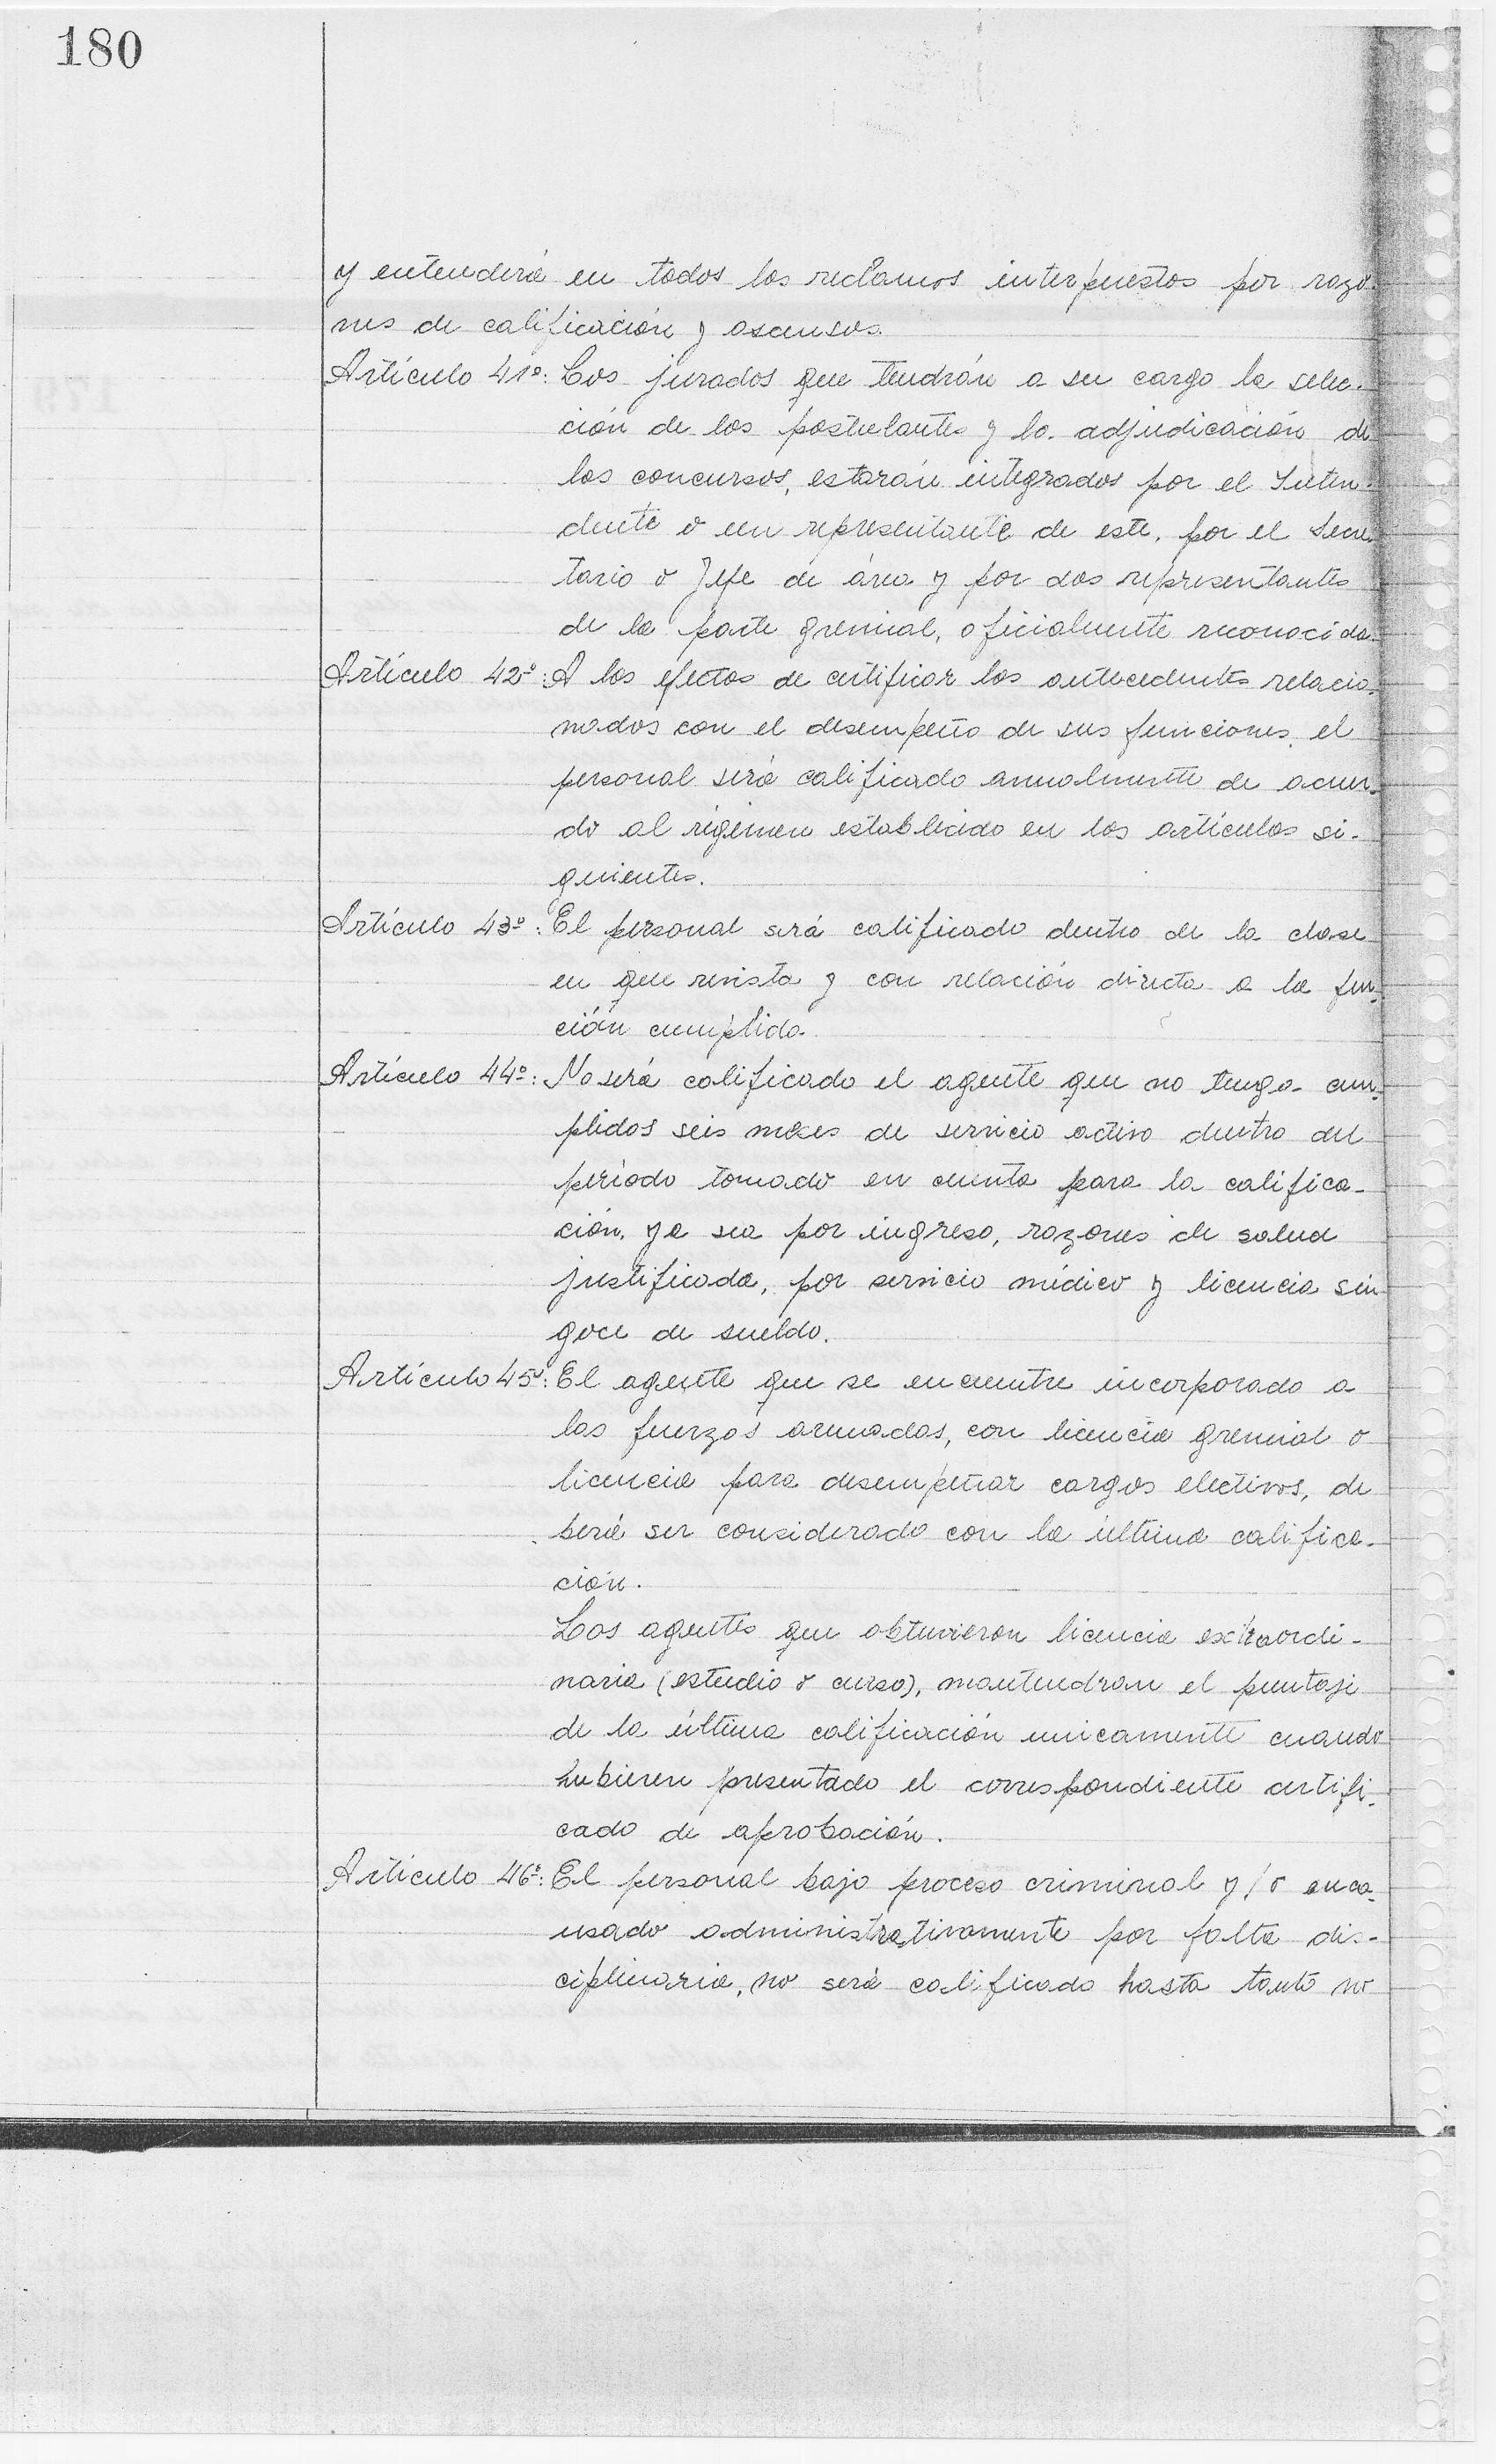 180
y entenderá en todos los reclamos interpuestos por razo-
nes de calificación y ascensos.
Artículo 41º: Los jurados que tendrán a su cargo la selec-
ción de los postulantes y la adjudicación de
los concursos, estarán integrados por el Inten-
dente o un representante de este, por el Secre-
tario o Jefe de área y por dos representantes
de la parte gremial, oficialmente reconocida.
Artículo 42º: A los efectos de certificar los antecedentes relacio-
nados con el desempeño de sus funciones, el
personal será calificado anualmente de acuer-
do al régimen establecido en los artículos si-
guientes.
Artículo 43º: El personal será calificado dentro de la clase
en que revista y con relación directa a la fun-
ción cumplida.
Artículo 44º: No será calificado el agente que no tenga cum-
plidos seis meses de servicio activo dentro del
período tomado en cuenta para la califica-
ción, ya sea por ingreso, razones de salud
justificada, por servicio médico y licencia sin
goce de sueldo.
Artículo 45º: El agente que se encuentre incorporado a
las fuerzas armadas, con licencia gremial o
licencia para desempeñar cargos electivos, de
berá ser considerado con la última califica-
ción.
Los agentes que obtuvieron licencia extraordi-
naria (estudio o curso), mantendran el puntaje
de la última calificación unicamente cuando
hubieren presentado el correspondiente certifi-
cado de aprobación.
Artículo 46º: El personal bajo proceso criminal y/o enca-
usado administrativamente por falta dis-
ciplinaria, no será calificado hasta tanto no